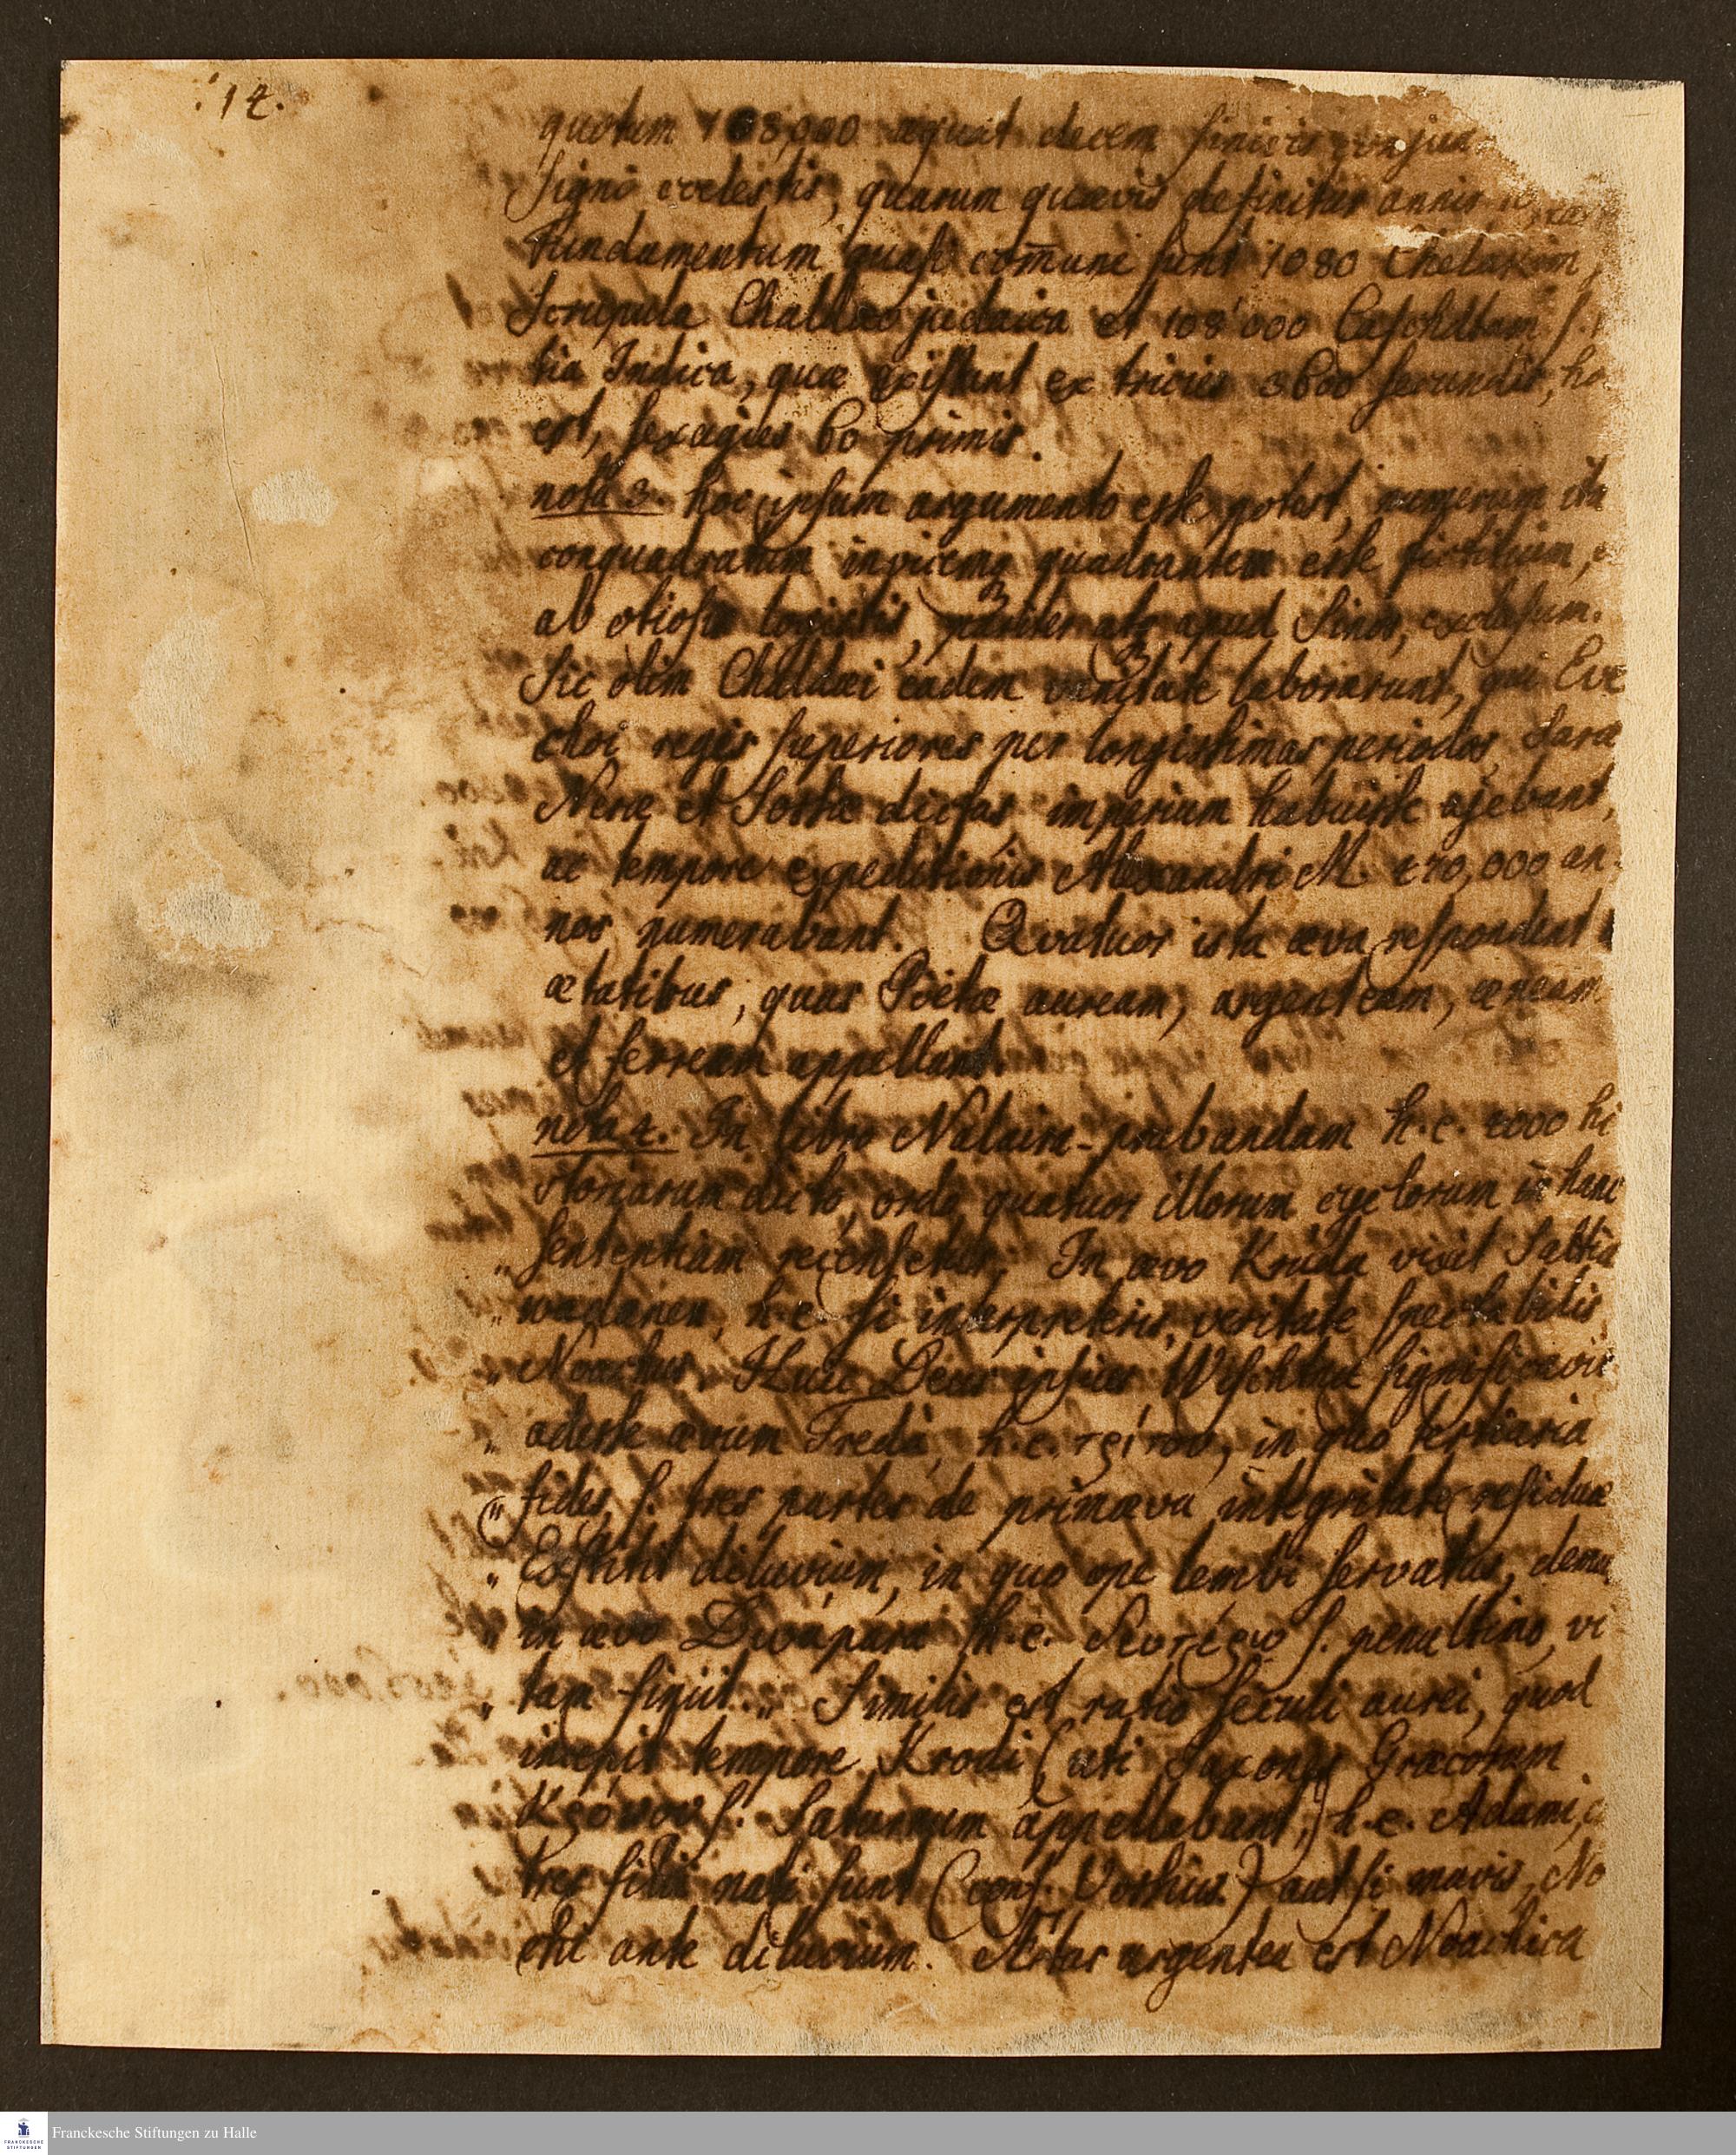 14.
quotum 108,000 æquat decem sinicis conjun
signi cœlestis, quarum quævis definitur annis
Fundamentum quasi com̄une sunt 1080 Chelakim,
Scrupula Chaldæo judaica et 108'000 Caschdtam s.
tia Indica, quæ existant ex tricies 3600 secundis, ho
est, sexagies 60 primis.
nota 3. hoc ipsum argumento esse potest, numerum ita
conquadratum esse fictitium, e
ab otiosis logistis, pariter atq apud Sinas, exclusum.
Sic olim Chaldæi eadem vanitate laborarunt, qui Eve
choi regis superiores per longissimas periodos, Saræ
Neræ et Sossæ dictas imperium habuisse ajebant,
ac tempore expeditionis Alexandri M. 470,000 an-
nos numerabant. Qvatuor ista æva respondent
ætatibus, quas Poëtæ auream, argenteam, æneam
et ferream appellant.
nota 4. In libro h.e. 2000 hi
storiarum dicto, ordo quatuor illorum cyclorum in hanc
„ sententiam recensetur; In ævo Krúda vixit Sattia
„ h.e. si interpreteris, veritate spectabilis
„ Noachus. Huic Deus ipsius Wischtnu significavit
„ adesse ævum Tredà, h.e. τρίτον, in quo tertiaria
„ fides, s. tres partes de primæva integritate residuæ
„ Exstitit diluvium, in quo ope lembi servatus, demu
„ in ævo Dwápara h.e. δευτέρω s. penultimo, vi
„ tam finiit.„ Similis est ratio seculi aurei, quod
incepit tempore Krodi (uti Saxones Græcorum
Κρόνον s. Saturnum appellabant,) h.e. Adami, c
tres filii nati sunt (conf. Vossius) aut si mavis, No
chi ante diluvium. Ætas argentea est Noachica
Franckesche Stiftungen zu Halle